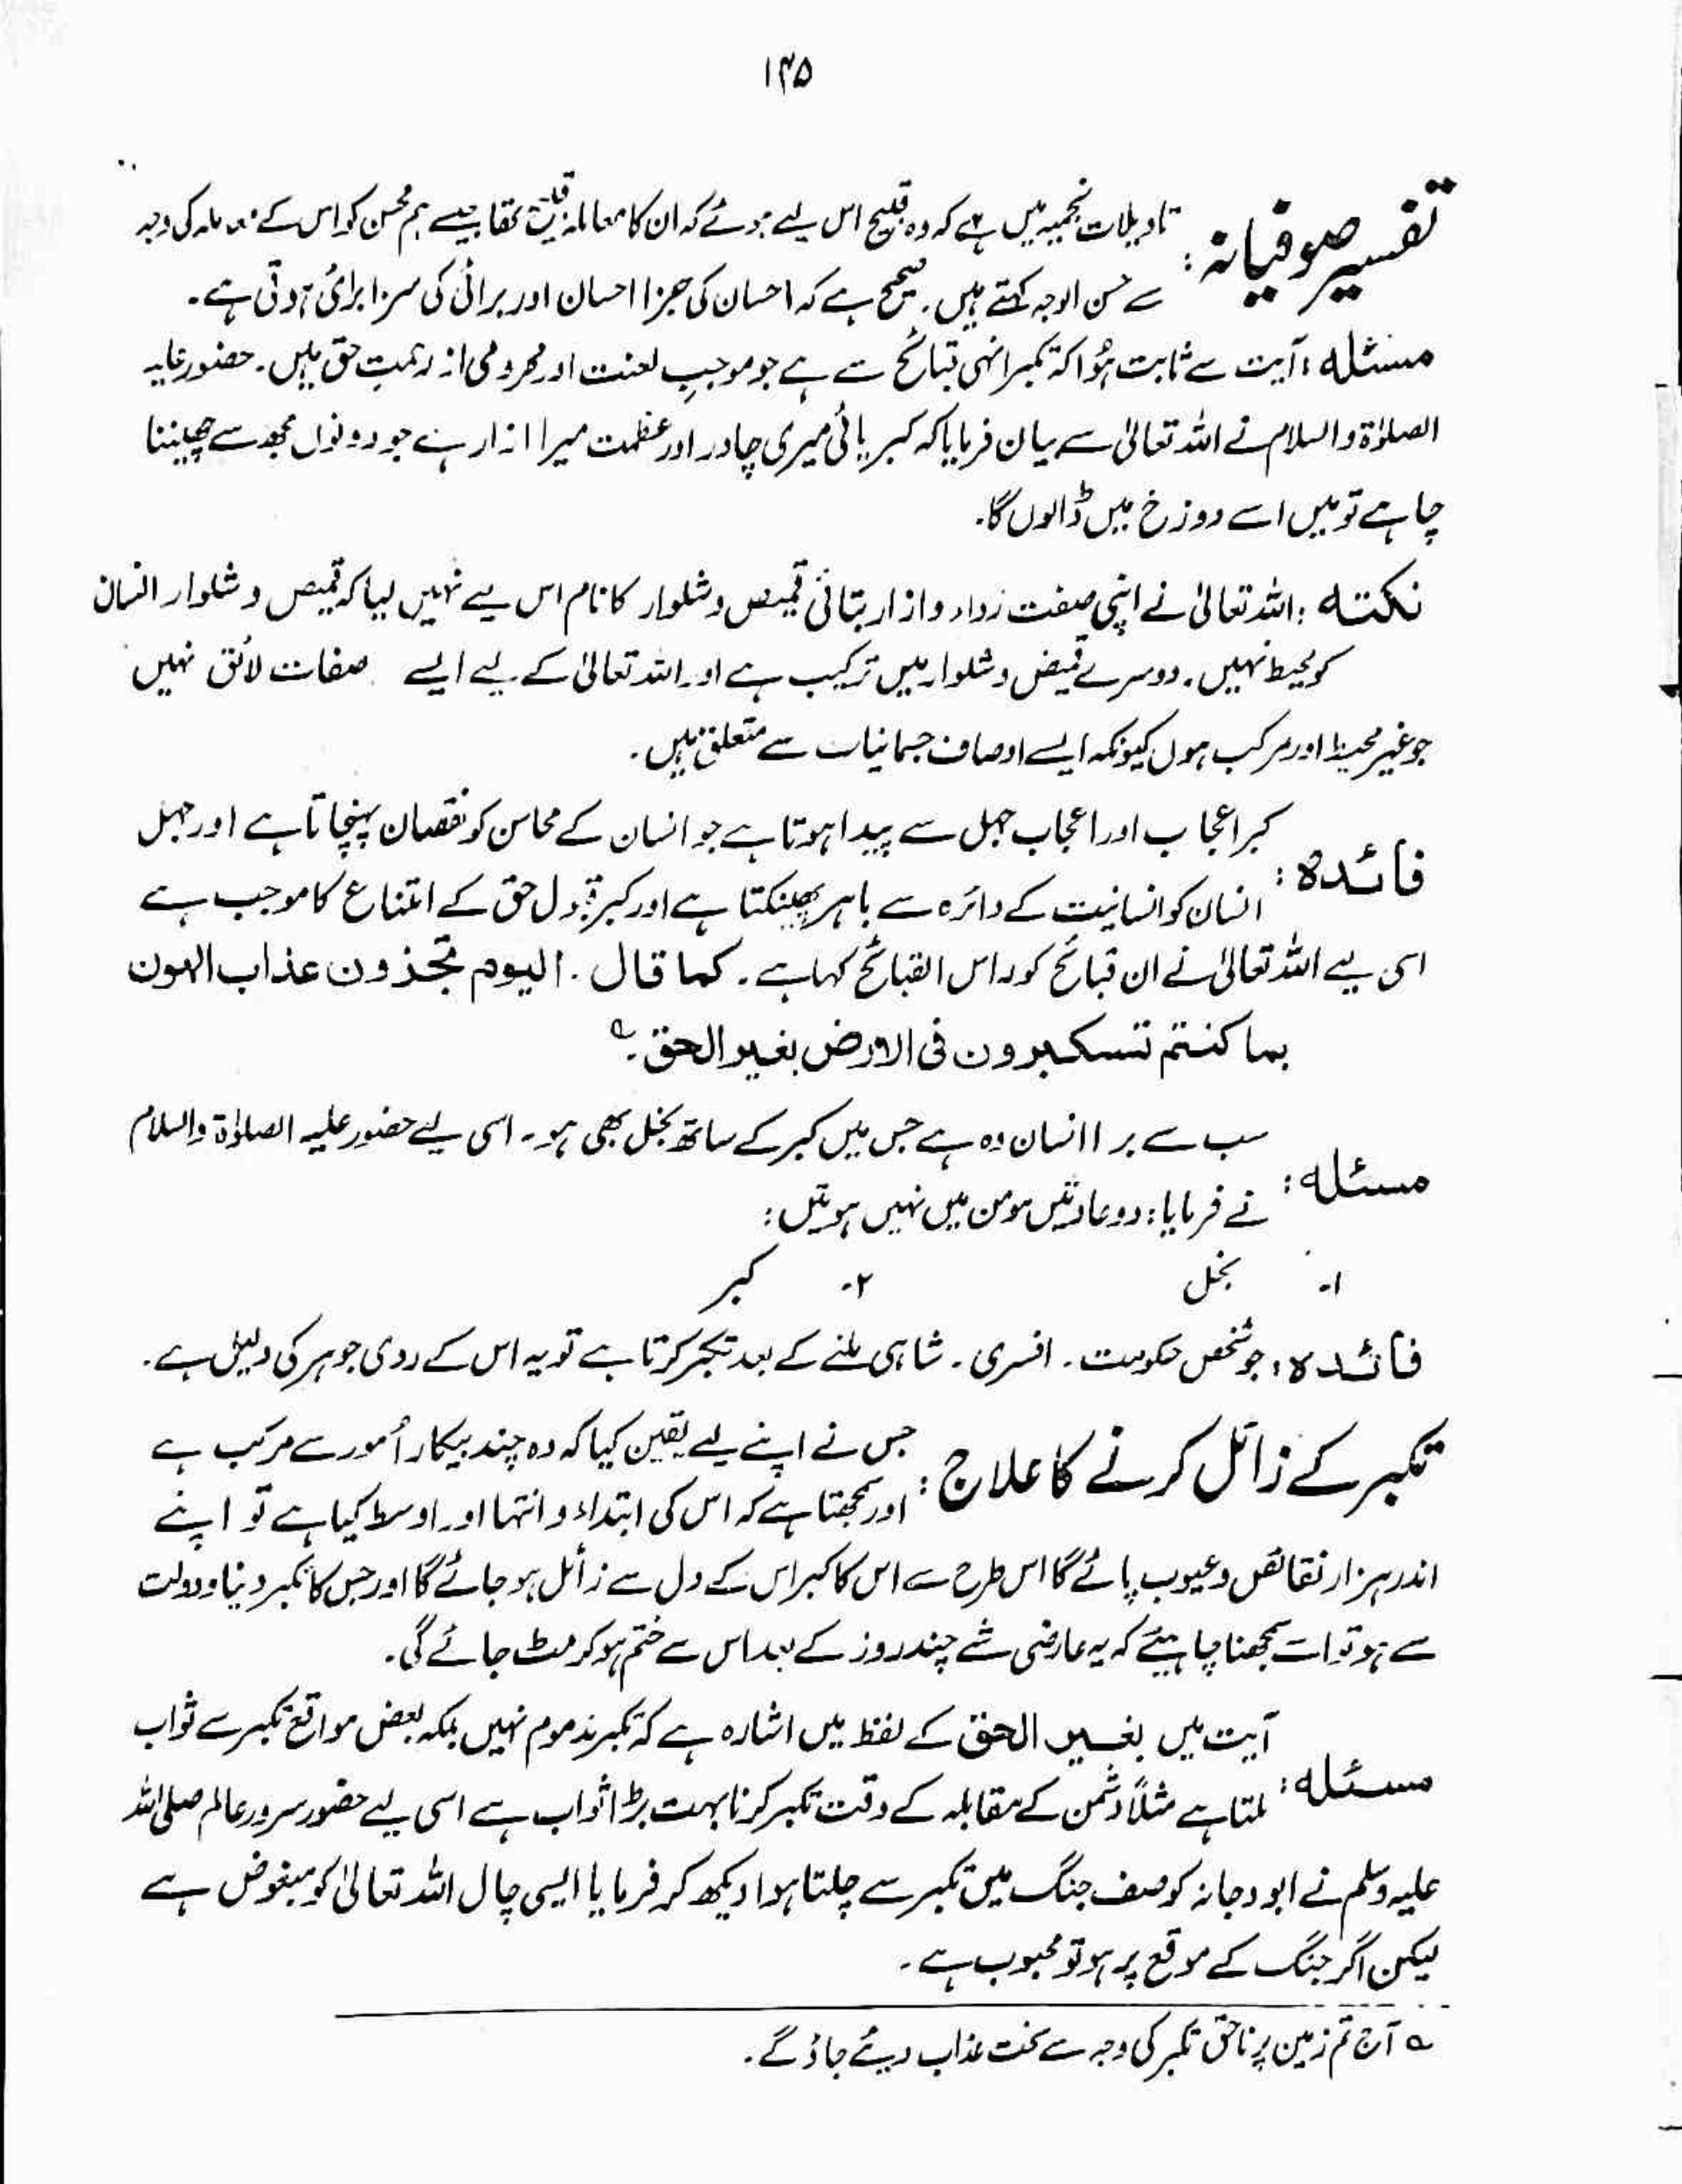 ۱۴۵
تفسیر صوفیانہ : تاویلات نجمیہ میں ہے کہ وہ قبیح اس لیے ہوئے کہ ان کا معاملہ قبیح تھا جیسے ہم محسن کو اس کے معاملہ کی وجہ
سے حسن الوجہ کہتے ہیں۔ صحیح ہے کہ احسان کی جزا احسان اور برائی کی سزا برائی ہوتی ہے۔
مسئلہ : آیت سے ثابت ہُوا کہ تکبر انہی قبائح سے ہے جو موجبِ لعنت اور محرومی از رحمتِ حق ہیں۔ حضور علیہ
الصلوٰۃ والسلام نے اللہ تعالیٰ سے بیان فرمایا کہ کبریائی میری چادر اور عظمت میرا ازار ہے جو دونوں مجھ سے چھیننا
چاہے تو میں اسے دوزخ میں ڈالوں گا۔
نکتہ : اللہ تعالیٰ نے اپنی صفت رداء و ازار بتائی قمیص و شلوار کا نام اس لیے نہیں لیا کہ قمیص و شلوار انسان
کو محیط نہیں۔ دوسرے قمیض و شلوار میں ترکیب ہے اور اللہ تعالیٰ کے لیے ایسے صفات لائق نہیں
جو غیر محیط اور مرکب ہوں کیونکہ ایسے اوصاف جسمانیات سے متعلق ہیں۔
فائدہ : کبر اعجاب اور اعجاب جہل سے پیدا ہوتا ہے جو انسان کے محاسن کو نقصان پہنچاتا ہے اور جہل
انسان کو انسانیت کے دائرہ سے باہر پھینکتا ہے اور کبر قبول حق کے امتناع کا موجب ہے
اسی لیے اللہ تعالیٰ نے ان قبائح کو راس القبائح کہا ہے۔ کما قال ۔ الیوم تجذون عذاب الھون
بما کنتم تستکبرون فی الارض بغیر الحق۔ لہ
مسئلہ : سب سے برا انسان وہ ہے جس میں کبر کے ساتھ بخل بھی ہو۔ اسی لیے حضور علیہ الصلوٰۃ والسلام
نے فرمایا : دو عادتیں مومن میں نہیں ہوتیں :
۱۔ بخل ۲۔ کبر
فائدہ : جو شخص حکومت ۔ افسری ۔ شاہی ملنے کے بعد تکبر کرتا ہے تو یہ اس کے ردی جوہر کی دلیل ہے۔
تکبر کے زائل کرنے کا علاج : جس نے اپنے لیے یقین کیا کہ وہ چند بیکار اُمور سے مرکب ہے
اور سمجھتا ہے کہ اس کی ابتداء و انتہا اور اوسط کیا ہے تو اپنے
اندر ہزار نقائص و عیوب پائے گا اس طرح سے اس کا کبر اس کے دل سے زائل ہو جائے گا اور جس کا تکبر دنیا و دولت
سے ہو تو اسے سمجھنا چاہیئے کہ یہ عارضی شے چند روز کے بعد اس سے ختم ہو کر مٹ جائے گی۔
مسئلہ : آیت میں بغیر الحق کے لفظ میں اشارہ ہے کہ تکبر مذموم نہیں بلکہ بعض مواقع تکبر سے ثواب
ملتا ہے مثلاً دشمن کے مقابلہ کے وقت تکبر کرنا بہت بڑا ثواب ہے اسی لیے حضور سرور عالم صلی اللہ
علیہ وسلم نے ابو دجانہ کو صف جنگ میں تکبر سے چلتا ہوا دیکھ کر فرمایا ایسی چال اللہ تعالیٰ کو مبغوض ہے
لیکن اگر جنگ کے موقع پر ہو تو محبوب ہے۔
لہ آج تم زمین پر ناحق تکبر کی وجہ سے سخت عذاب دیئے جاؤ گے۔